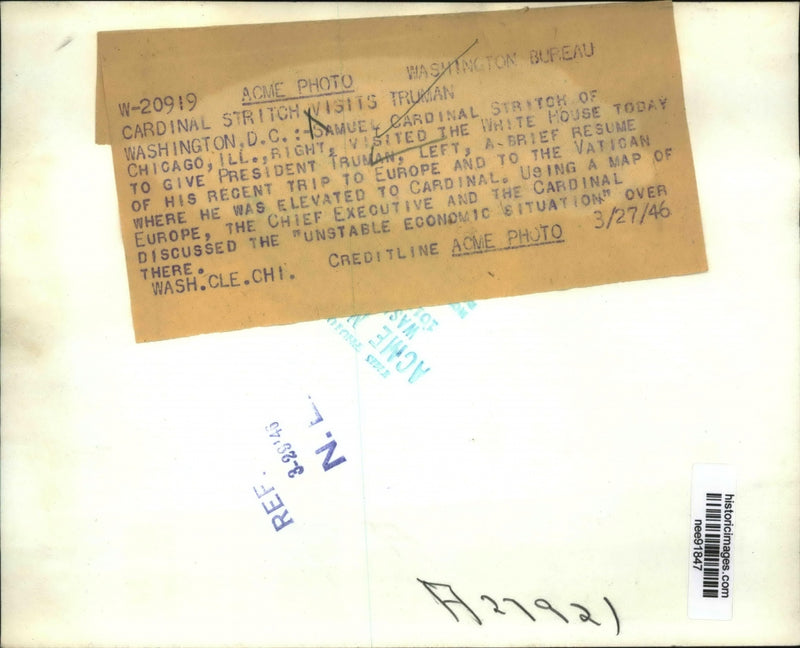 W-20919 ACME PHOTO WASHINGTON BUREAU
CARDINAL STRITCH VISITS TRUMAN
WASHINGTON, D.C.:-SAMUEL CARDINAL STRITCH OF
CHICAGO, ILL., RIGHT, VISITED THE WHITE HOUSE TODAY
TO GIVE PRESIDENT TRUMAN, LEFT, A BRIEF RESUME
OF HIS RECENT TRIP TO EUROPE AND TO THE VATICAN
WHERE HE WAS ELEVATED TO CARDINAL. USING A MAP OF
EUROPE, THE CHIEF EXECUTIVE AND THE CARDINAL
DISCUSSED THE "UNSTABLE ECONOMIC SITUATION" OVER
THERE.
CREDITLINE ACME PHOTO 3/27/46
WASH.CLE.CHI.
ACME
REF.
3-28'46
N.E.
historicimages.com
nee91847
A27921